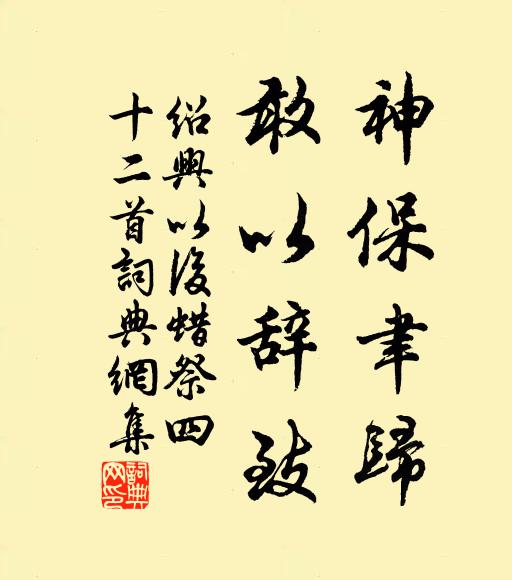 神保聿歸
敢以辞致
紹興以後蜡祭四
十二首詞典網集
詞典网印